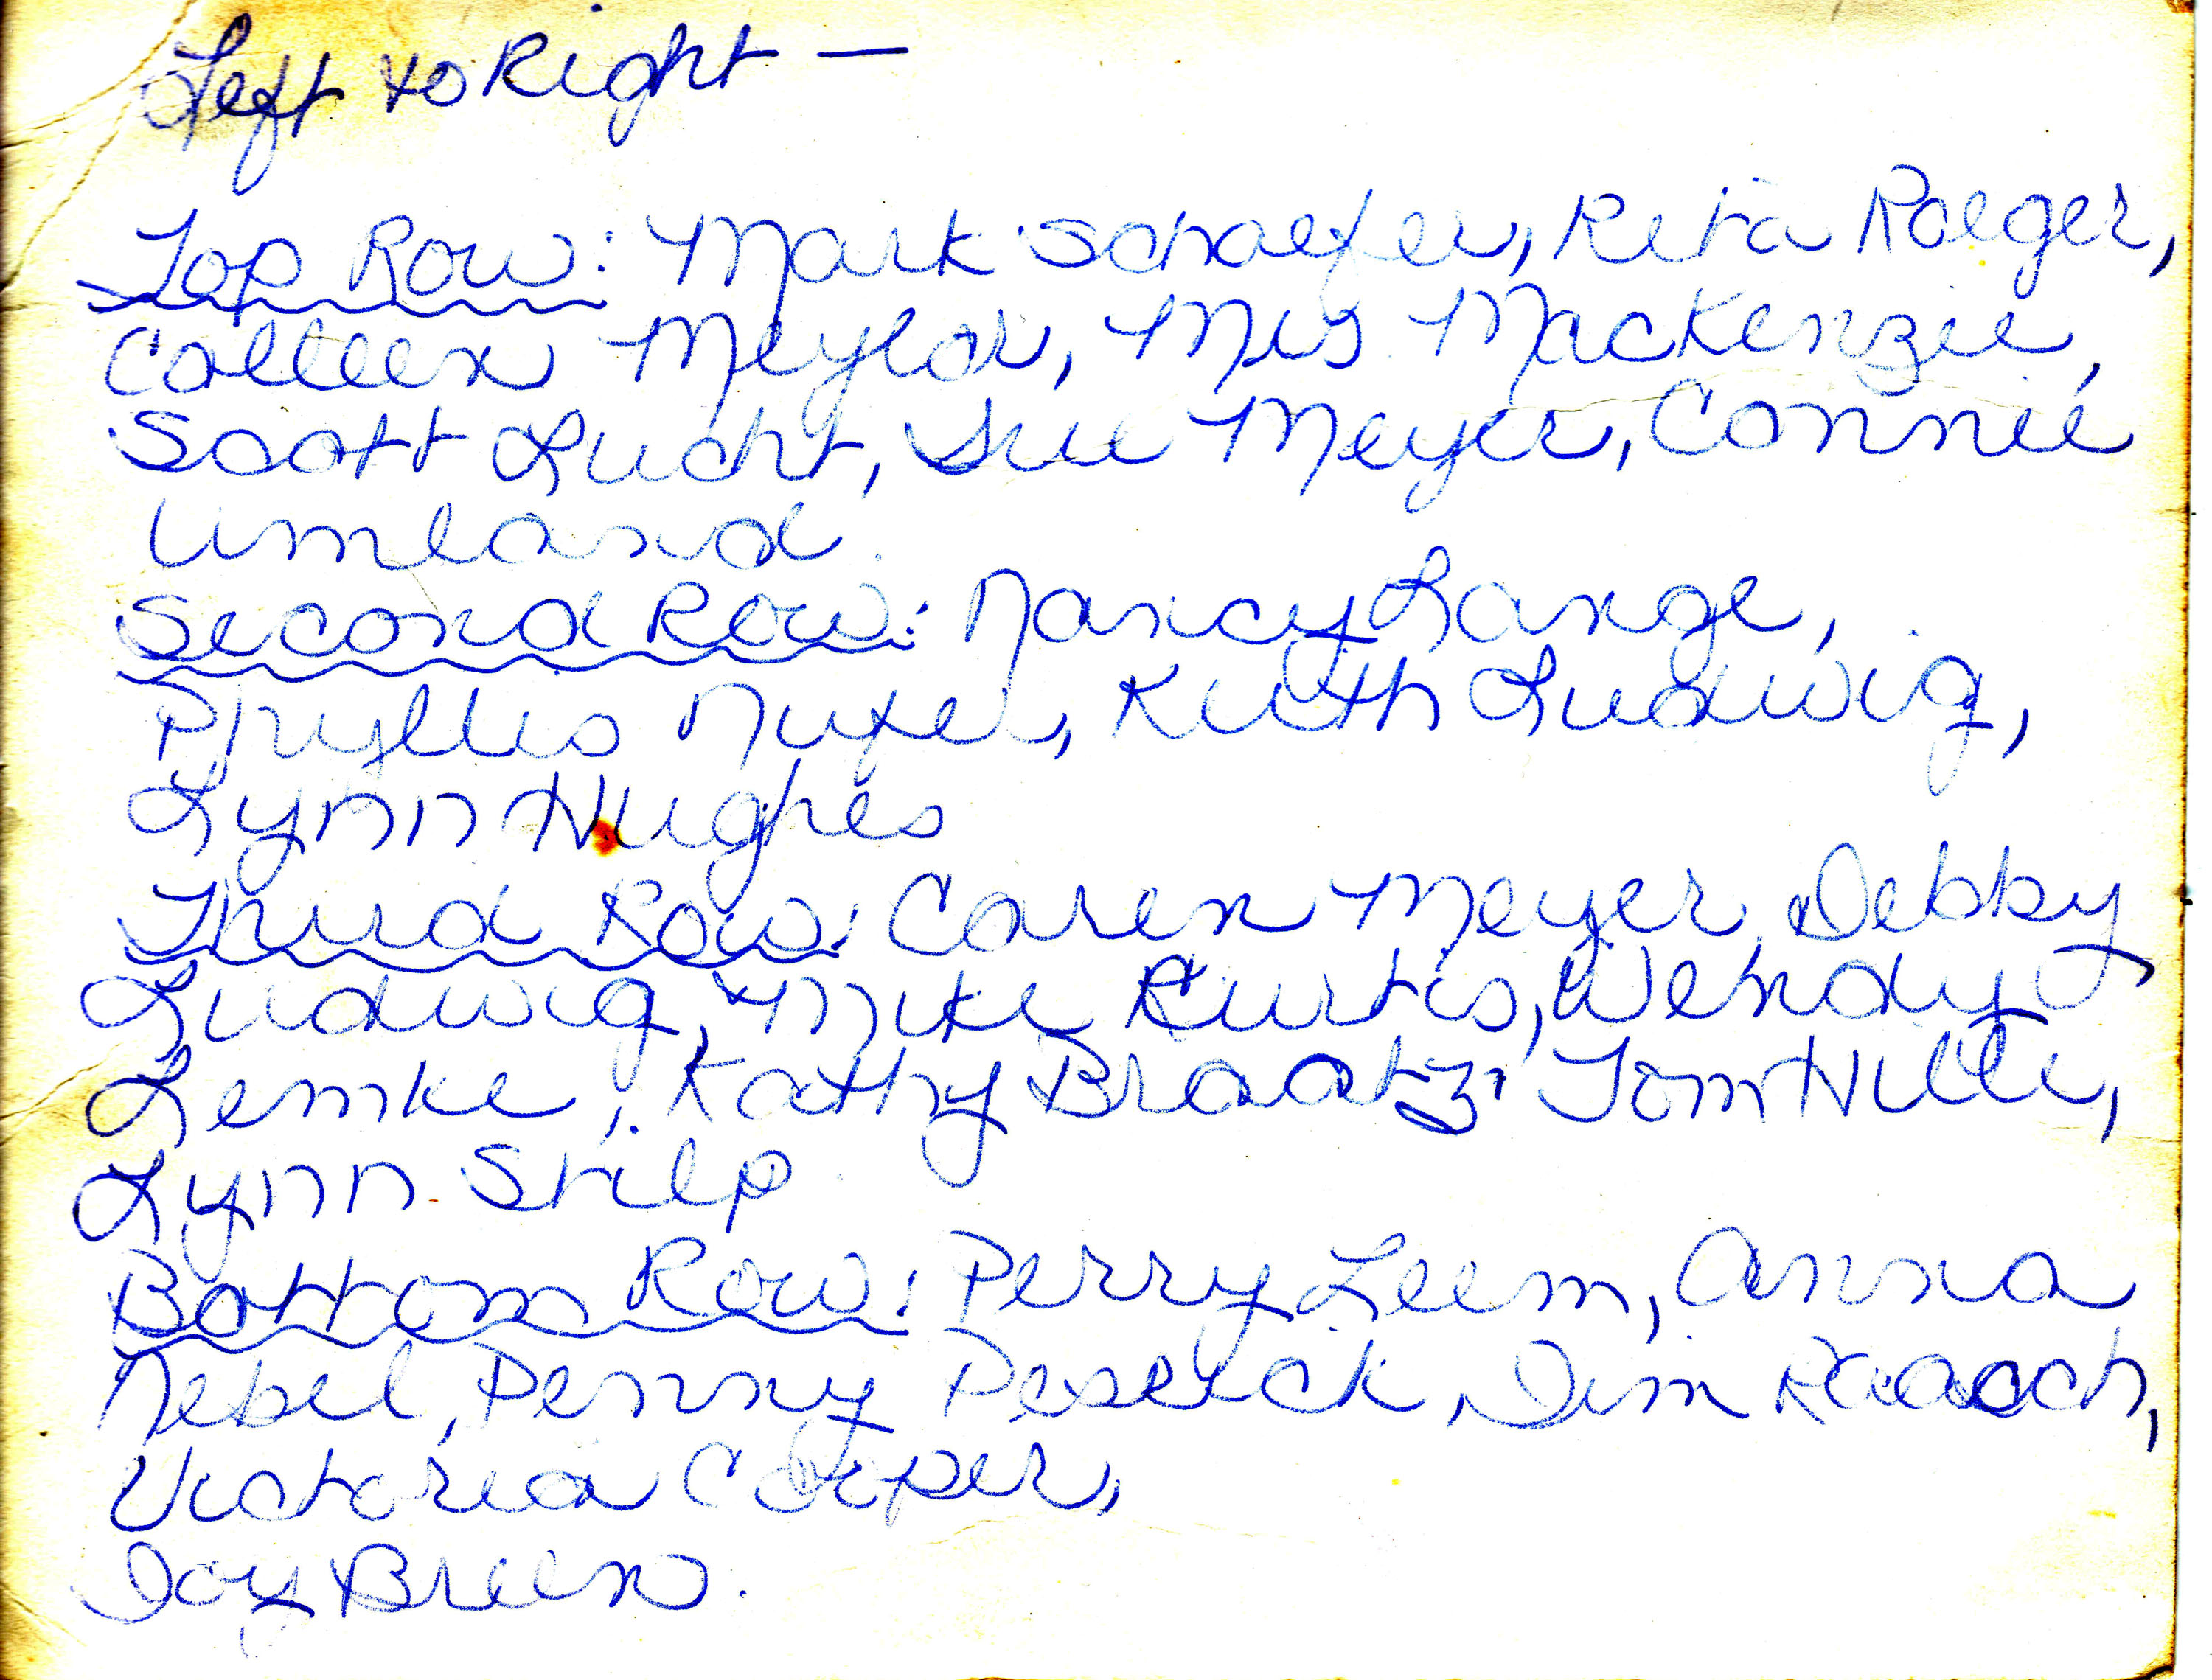 Left to Right —
Top Row: Mark Schaefer, Rita Roeger,
Colleen Meylor, Mrs Mackenzie,
Scott Lucht, Sue Meyer, Connie
Umland.
Second Row: Nancy Lange,
Phyllis Nufer, Kurth Ludwig,
Lynn Hughes
Third Row: Caren Meyer, Debby
Ludwig, Mike Kurtis, Wendy
Lemke, Kathy Braatz, Tom Hille,
Lynn Stilp.
Bottom Row: Perry Leem, Anna
Nebel, Penny Peserick, Jim Raasch,
Victoria Cooper,
Joy Breen.